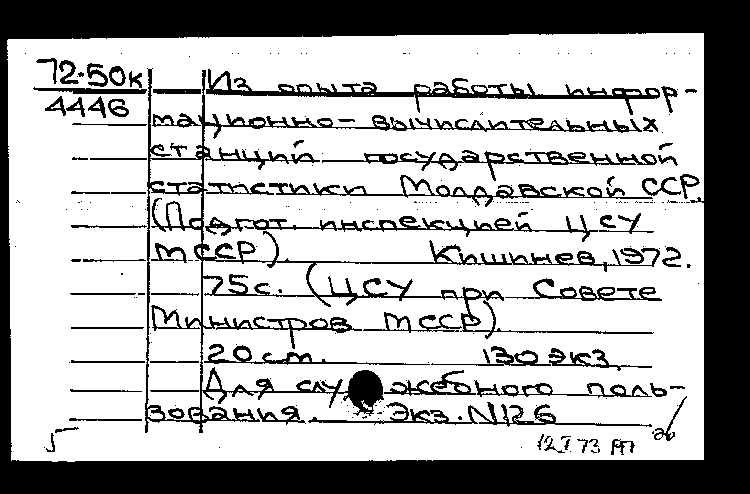 72-50к Из опыта работы инфор-
4446 мационно-вычислительных
станций государственной
статистики Молдавской ССР.
(Подгот. инспекцией ЦСУ
МССР). Кишинев, 1972.
75с. (ЦСУ при Совете
Министров МССР).
20 см. 130 экз.
Для служебного поль-
зования. Экз. N126
12 I 73